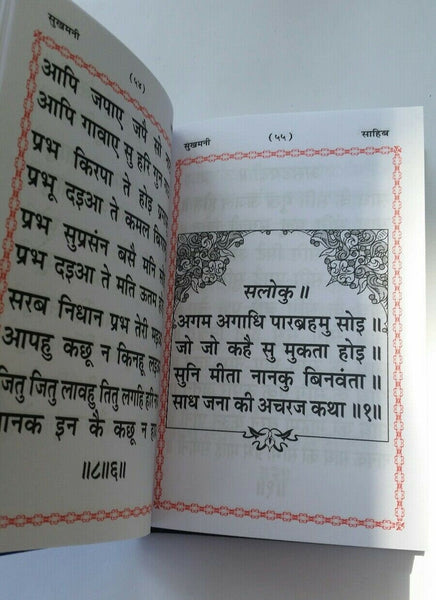 सुखमनी
(५४)
आपि जपाए जपै सो
आपि गावाए सु हरि गुन
प्रभ किरपा ते होइ
प्रभू दइआ ते कमल
प्रभ सुप्रसंन बसै मनि
प्रभ दइआ ते मति ऊतम
सरब निधान प्रभ तेरी
आपहु कछू न किनहू
जितु जितु लावहु तितु लगहि
नानक इन कै कछू न
॥८॥६॥
सुखमनी
(५५)
साहिब
सलोकु॥
अगम अगाधि पारब्रहमु सोइ॥
जो जो कहै सु मुकता होइ॥
सुनि मीता नानकु बिनवंता॥
साध जना की अचरज कथा॥१॥